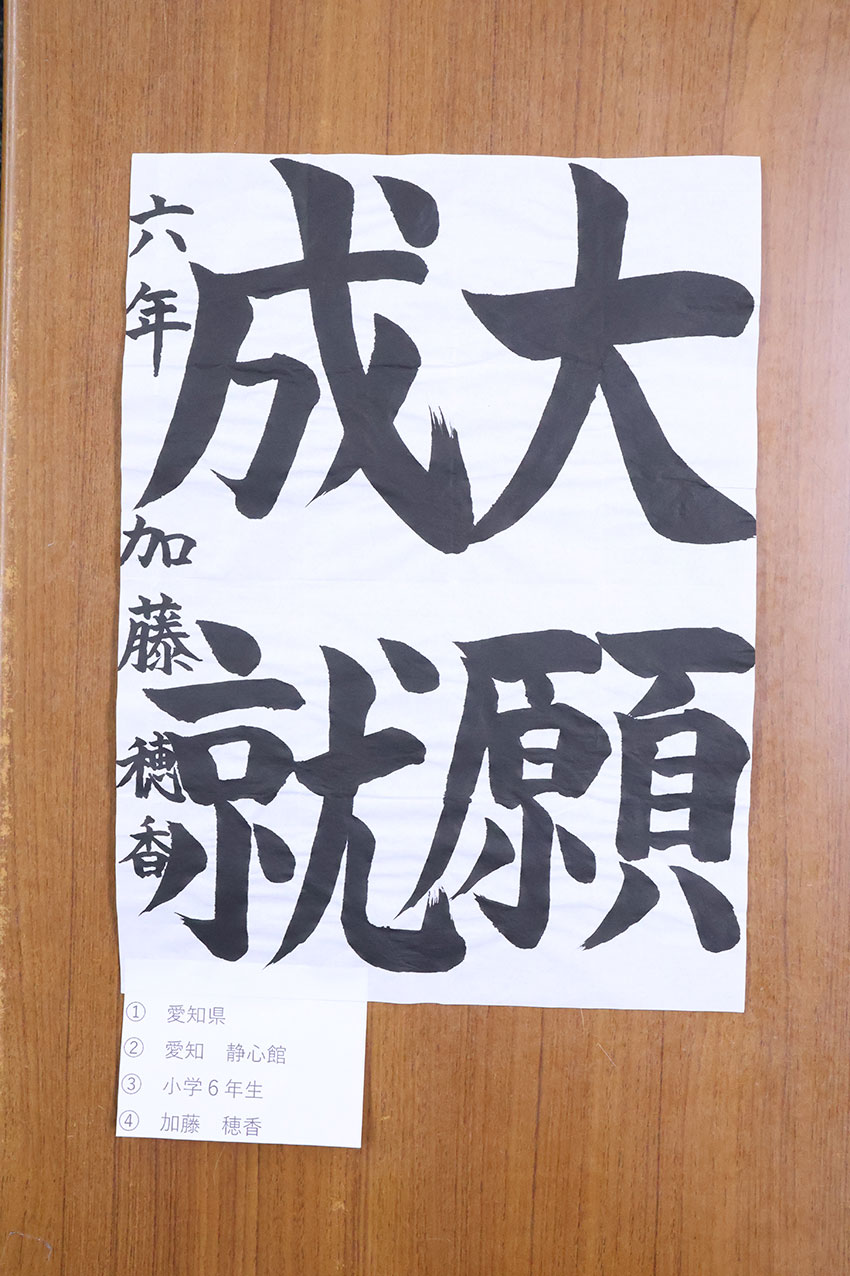 大願
成就
六年 加藤 穂香
① 愛知県
② 愛知 静心館
③ 小学6年生
④ 加藤 穂香